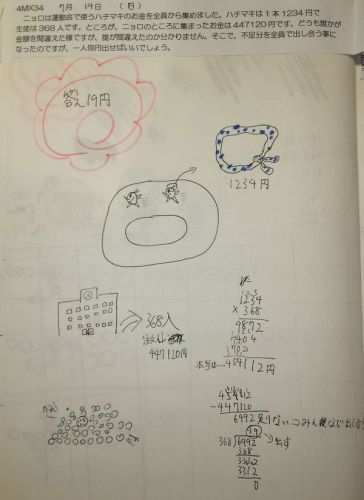 4MX34 7月14日(日)
ニョロは運動会で使うハチマキのお金を全員から集めました。ハチマキは1本1234円で
生徒は368人です。ところが、ニョロのところに集まったお金は447120円です。どうも誰かが
金額を間違えた様ですが、誰が間違えたのか分かりません。そこで、不足分を全員で出し合う事に
なったのですが、一人何円出せばいいでしょう。
答え19円
1234円
368人
447120円
1234
×368
9872
7404
3702
本当は…454112円
454112
-447120
6992 足りない→みんなで出し合う
19
368 6992 出す
368
3312
3312
0